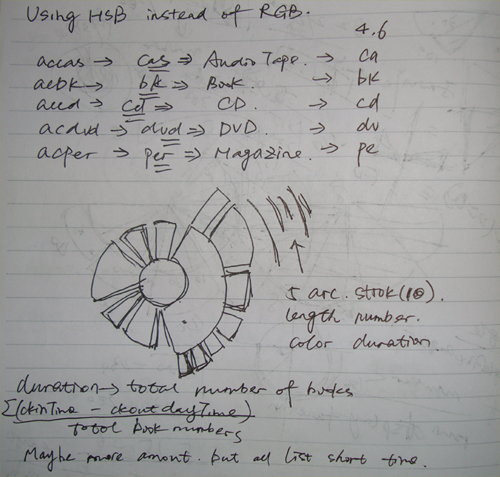 Using HSB instead of RGB.
4.6
accas → cas ⇒ Audio Tape. → ca
acbk → bk ⇒ Book → bk
accd → cd ⇒ CD. → cd
acdvd → dvd ⇒ DVD. → dv
acper → per ⇒ Magazine. → pe
5 arc. strok(10).
length number.
color duration.
duration → total number of books
Σ(ckinTime - ckoutdayTime)
total book numbers
Maybe more amont. but all list short time.